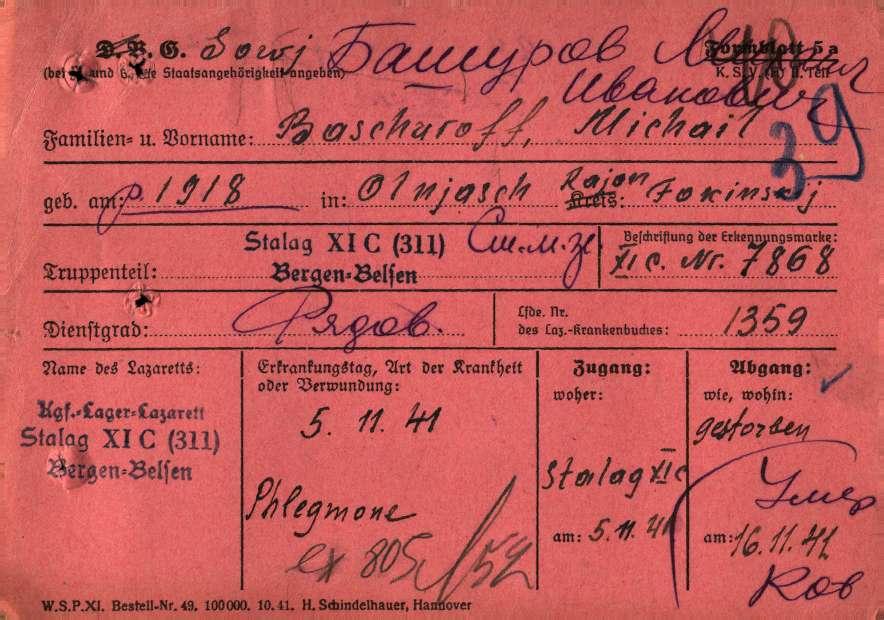 D. R. G. Sowj Башуров Михаил Formblatt 5a
(bei und Staatsangehörigkeit angeben) Иванович K. S. V. (R) II. Teil
Familien= u. Vorname: Baschuroff, Michail 39
geb. am: р. 1918 in: Olnjasch Rajon Kreis: Fokinskij
Stalag XI C (311) Beschriftung der Erkennungsmarke:
Truppenteil: Bergen=Belsen XI c. Nr. 7868
Dienstgrad: Рядов. Lfde. Nr. des Laz.=Krankenbuches: 1359
Name des Lazaretts: Erkrankungstag, Art der Krankheit Zugang: Abgang:
oder Verwundung: woher: wie, wohin:
Kgf.=Lager=Lazarett 5. 11. 41 gestorben
Stalag XI C (311) Stalag XI c Умер
Bergen=Belsen
Phlegmone am: 5. 11. 41 am: 16. 11. 41
ex 805/52 Ков
W.S.P.XI. Bestell=Nr. 49. 100000. 10. 41. H. Schindelhauer, Hannover